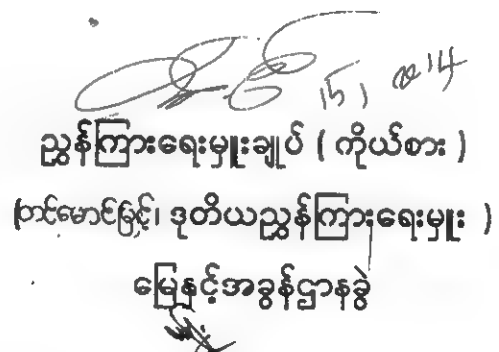 ညွှန်ကြားရေးမှူးချုပ် ( ကိုယ်စား )
(တင်မောင်မြင့်၊ ဒုတိယညွှန်ကြားရေးမှူး )
မြေနှင့်အခွန်ဌာနခွဲ